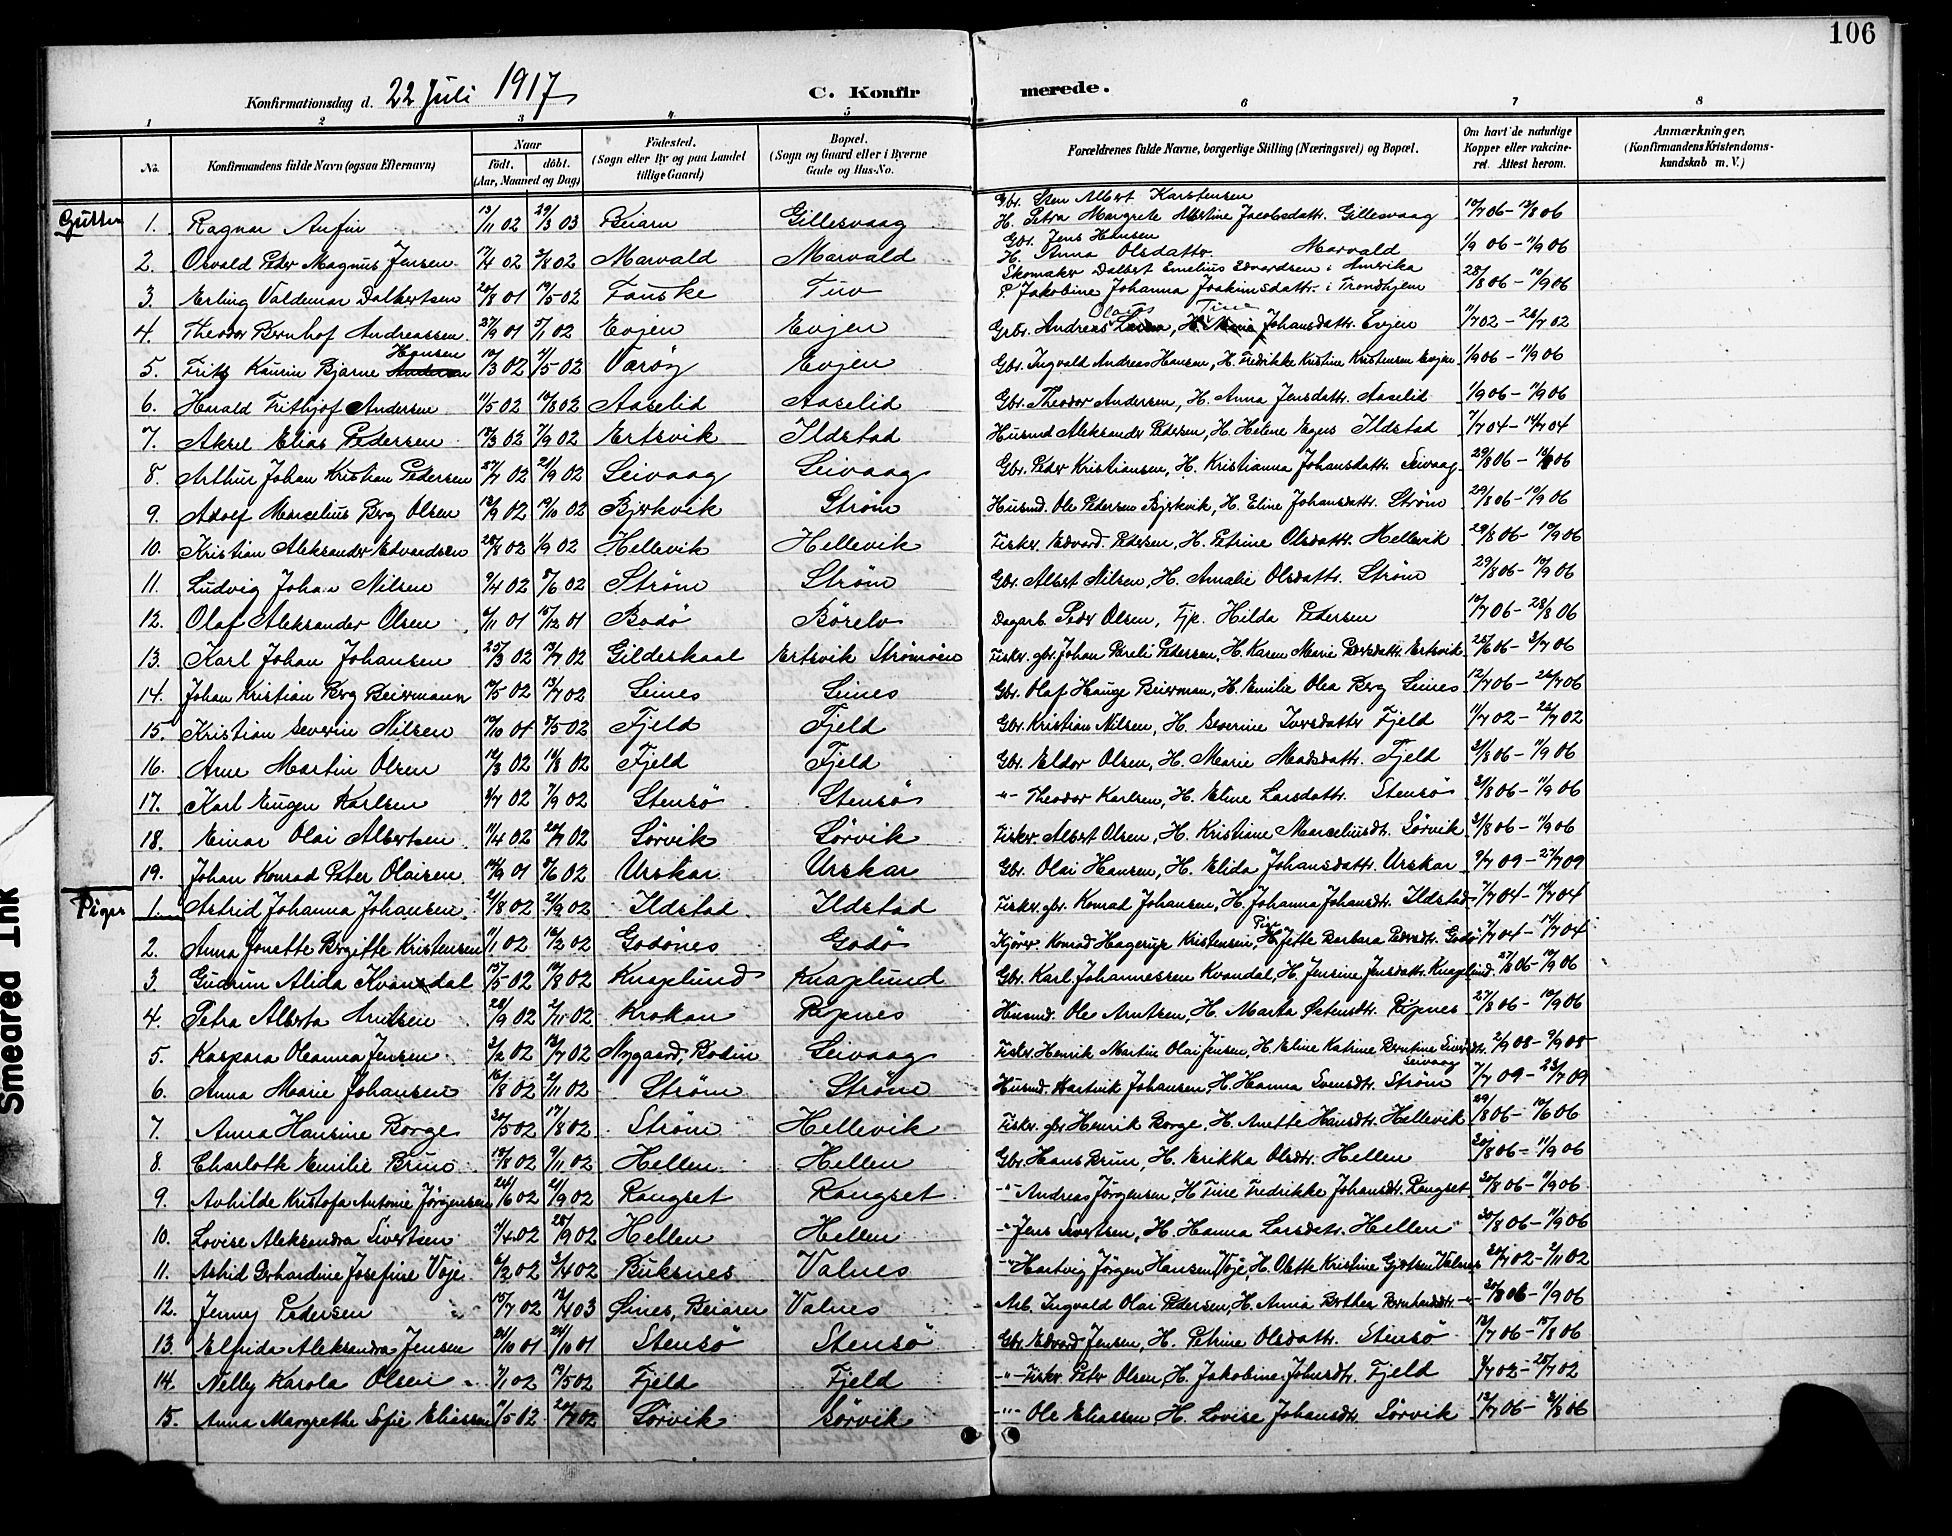 106
Konfirmationsdag d. 22 Juli 1917
C. Konfirmerede.
1 2 3 4 5 6 7 8
No. Konfirmandens fulde Navn (ogsaa Efternavn) Naar Födt. döbt. (Aar, Maaned og Dag) Födested. (Sogn eller By og paa Landet tillige Gaard) Bopæl. (Sogn og Gaard eller i Byerne Gade og Hus-No. Forældrenes fulde Navne, borgerlige Stilling (Næringsvei) og Bopæl. Om havt de naturlige Kopper eller vaccineret. Attest herom. Anmærkninger. (Konfirmandens Kristendomskundskab m. V.)
Gutter
1. Ragnar Anfin 13/11 02 29/3 03 Beiarn Gillesvaag Gbr. Sten Albert Karstensen H. Petra Margrete Albertine Jacobsdattr. Gillesvaag
2. Osvald Peder Magnus Jensen 17/4 02 3/8 02 Marvald Marvald Gbr. Jens Hansen H. Anna Olsdattr. Marvald 1/9 06 - 11/9 06
3. Erling Valdemar Dalbertsen 20/8 01 19/5 02 Fauske Tuv Skomaker Dalbert Emelius Edvardsen i Amerika P. Jakobine Johanna Joakimsdattr. i Trondhjem 28/8 06 - 10/9 06
4. Theodor Bernhof Andreassen 27/9 01 5/1 02 Evjen Evjen Gbr. Andreas Olaus, H. Tine Johansdattr. Evjen 11/7 02 - 26/7 02
5. Fritz Kaurin Bjarne Hansen 10/3 02 4/5 02 Væröy Evjen Gbr. Ingvald Andreas Hansen, H. Fredrikke Kristine Kristensen Evjen 1/9 06 - 11/9 06
6. Harald Frithjof Andersen 11/5 02 10/8 02 Aaselid Aaselid Gbr. Theodor Andersen, H. Anna Jensdattr. Aaselid 1/9 06 - 11/9 06
7. Aksel Elias Pedersen 13/3 02 7/9 02 Ertsvik Ildstad Husmd Aleksander Pedersen, H. Helene Ildstad 7/7 04 - 14/7 04
8. Arthur Johan Kristian Pedersen 27/7 02 21/9 02 Seivaag Seivaag Gbr. Peder Kristiansen, H. Kristianna Johansdattr. Seivaag 29/8 06
9. Adolf Marcelius Berg Olsen 13/9 02 19/10 02 Bjerkvik Ström Husmd. Ole Pedersen Bjerkvik, H. Eline Johansdattr. Ström 29/8 06 - 10/9 06
10. Kristian Aleksander Edvardsen 28/8 02 1/9 02 Hellevik Hellevik Fisker Edvard Pedersen, H. Petrine Olsdattr. Hellevik 29/8 06 - 10/9 06
11. Ludvig Johan Nilsen 9/4 02 8/6 02 Ström Ström Gbr. Albert Nilsen, H. Amalie Olsdattr. Ström 29/8 06 - 10/9 06
12. Olaf Aleksander Olsen 6/11 01 15/12 01 Bodö Börelv Dagarb. Peder Olsen, Fjp. Hilda Pedersen 12/7 06 - 28/8 06
13. Karl Johan Johansen 25/3 02 13/7 02 Gildeskaal Ertsvik Strömöen Fisker gbr. Johan Pareli Pedersen, H. Karen Marie Pedersdattr. Ertsvik 26/6 06 - 3/7 06
14. Johan Kristian Berg Beiermann 19/5 02 13/7 02 Leines Leines Gbr. Olaf Hauge Beierman, H. Emilie Olea Berg Leines 12/7 06 - 26/7 06
15. Kristian Severin Nilsen 19/10 01 8/5 02 Fjeld Fjeld Gbr. Kristian Nilsen, H. Severine Iversdattr Fjeld 11/7 02 - 26/7 02
16. Arne Martin Olsen 12/3 02 10/8 02 Fjeld Fjeld Gbr. Eldor Olsen, H. Marie Madsdattr. Fjeld 31/8 06 - 11/9 06
17. Karl Eugen Karlsen 3/7 02 7/9 02 Stensö Stensö -"- Theodor Karlsen, H. Eline Larsdattr. Stensö 31/8 06 - 11/9 06
18. Einar Olai Albertsen 11/4 02 20/7 02 Sörvik Sörvik Fisker Albert Olsen, H. Kristiane Marceliusdt. Sörvik 31/8 06 - 11/9 06
19. Johan Konrad Peter Olaisen 14/9 01 8/6 02 Urskar Urskar Gbr. Olai Hansen, H. Elida Johansdattr. Urskar 9/7 09 - 27/7 09
Piger
1. Astrid Johanna Johansen 2/8 02 21/9 02 Ildstad Ildstad Fisker gbr. Konrad Johansen, H. Johanna Johansdt. Ildstad 7/7 04 - 14/7 04
2. Anna Jonette Birgitte Kristensen 11/1 02 16/2 02 Godönes Godö Kjörer Konrad Hagerup Kristensen, H. Jette Barbara Pedersdt. Godö 7/7 04 - 14/7 04
3 Gudrun Alida Kvandal 15/5 02 10/8 02 Knaplund Knaplund Gbr. Karl Johannessen Kvandal, H. Jensine Jensdattr. Knaplund 27/8 06 - 10/9 06
4. Petra Alberta Arntsen 28/9 02 2/11 02 Krokan Ripnes Husmd. Ole Arntsen, H. Marta Ripnes 27/8 06 - 10/9 06
5. Kaspara Oleanna Jensen 3/2 02 13/7 02 Nygaard, Rödin Seivaag Fisker Henrik Martin Olai Jensen, H. Eline Katrine Berntine Seivaag 2/9 08 - 9/9 08
6. Anna Marie Johansen 16/8 02 2/11 02 Ström Ström Husmd. Hartvik Johansen, H. Hanna Svensdt. Ström 7/7 09 - 23/7 09
7. Anna Hansine Borge 30/5 02 17/8 02 Ström Hellevik Fisker gbr Henrik Borge, H. Anette Hansdt. Hellevik 29/8 06 - 10/6 06
8. Charlotte Emilie Bruns 13/8 02 9/11 02 Hellen Hellen Gbr. Hans Brun, H. Erikka Olsdt. Hellen 30/8 06 - 11/9 06
9. Arhilde Kristofa Antonie Jörgensen 24/6 02 21/9 02 Rangset Rangset -"- Andreas Jörgensen, H Tine Fredrikke Johansdt. Rangset 30/8 06 - 11/9 06
10. Lovise Aleksandra Sivertsen 11/4 02 28/9 02 Hellen Hellen -"- Jens Sivertsen, H. Hanna Larsdattr. Hellen 30/8 06 - 11/9 06
11. Astrid Gerhardine Josefine Voje 6/2 02 3/4 02 Buksnes Valnes -"- Hartvig Jörgen Hansen Voje, H. Olette Kristine Gjertsen Valnes
12. Jenny Pedersen 15/7 02 12/4 03 Leines, Beiaren Valnes Arb. Ingvald Olai Pedersen, H. Anna Berthea Bernhardsdt. -"- 30/8 06 - 11/9 06
13. Elfrida Aleksandra Jensen 20/10 01 24/10 01 Stensö Stensö Gbr. Edvard Jensen, H. Petrine Olsdattr. Stensö 12/7 06 - 15/8 06
14. Nelly Karola Olsen 7/1 02 19/5 02 Fjeld Fjeld -"- Fisker Peter Olsen, H. Jakobine Johnsdt. Fjeld 9/7 02 - 25/7 02
15. Anna Margrethe Sofie Eliassen 11/5 02 20/7 02 Sörvik Sörvik -"- Ole Eliassen H. Lovise Johansdt. Sörvik 12/7 06 - 31/8 06
Smeared Ink